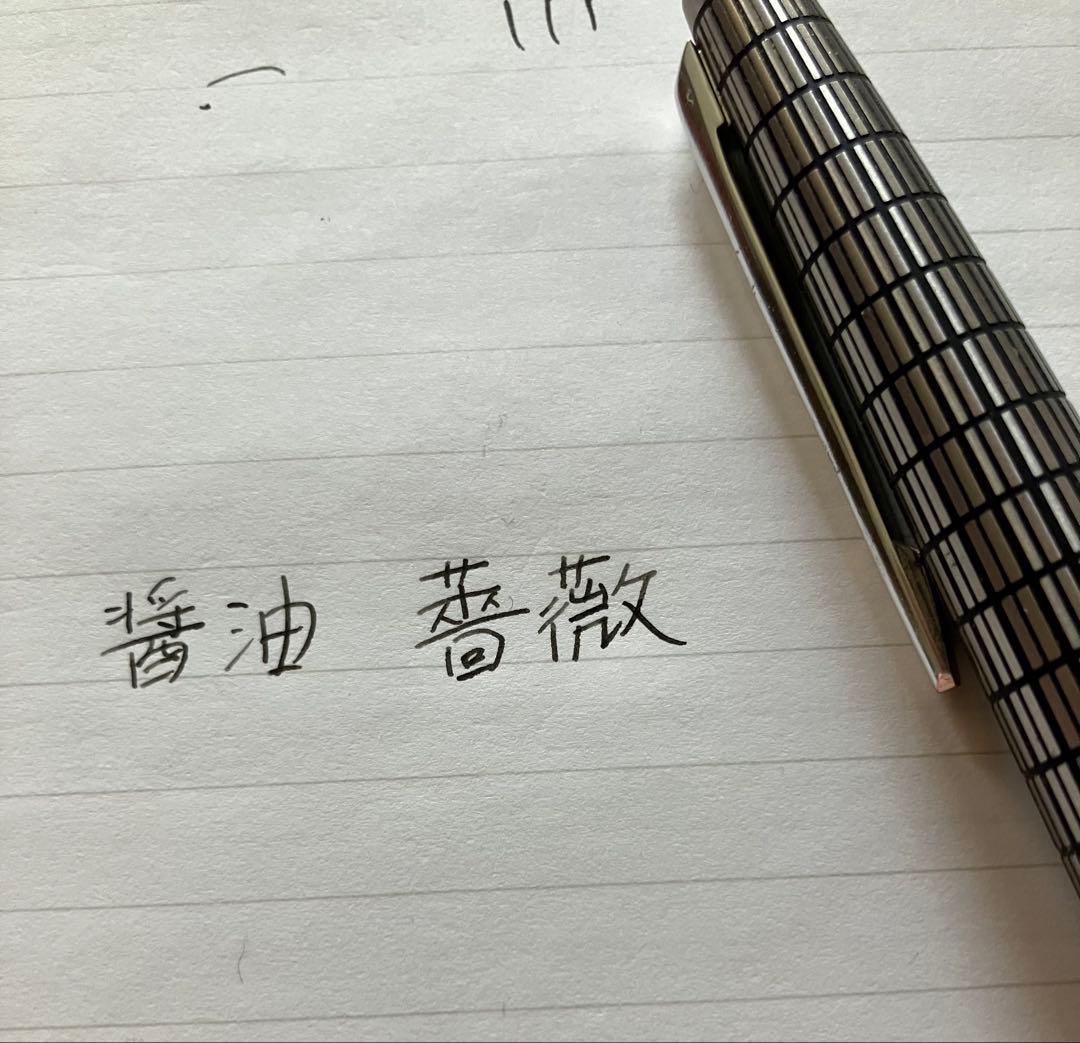 醤油 薔薇